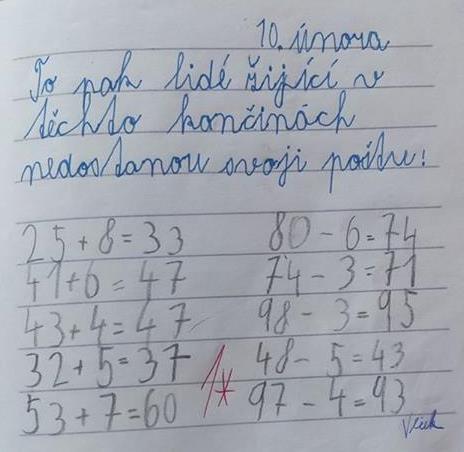 10. února
To pak lidé žijící v
těchto končinách
nedostanou svoji poštu!
25+8=33
41+6=47
43+4=47
32+5=37
53+7=60
80-6=74
74-3=71
98-3=95
48-5=43
97-4=93
1*